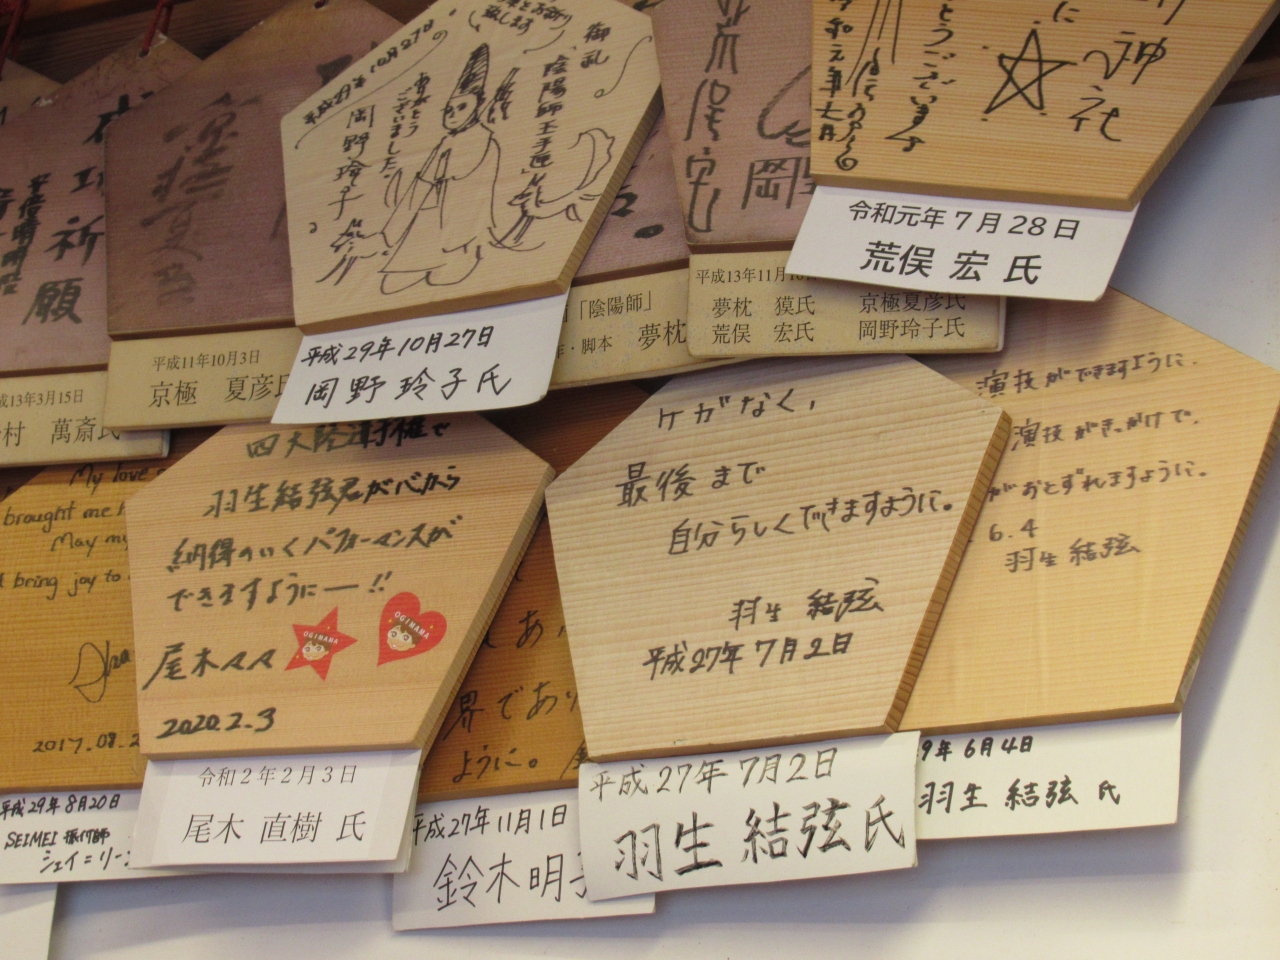 祈願
平成13年3月15日
村 萬斎氏
平成11年10月3日
京極 夏彦氏
御礼
「陰陽師玉手匣」
ございました。
岡野玲子
平成29年10月27日
岡野 玲子氏
「陰陽師」
作・脚本 夢枕
荒俣宏
岡
平成13年11月
夢枕 獏氏 京極夏彦氏
荒俣 宏氏 岡野玲子氏
神社
とうございます
令和元年七月
令和元年7月28日
荒俣 宏 氏
My love
brought me
May my
bring joy to
2017.08.2
平成29年8月20日
SEIMEI 振付師
シェイ=リーン
四大陸選手権で
羽生結弦君が心から
納得のいくパフォーマンスが
できますようにー!!
OGIMAMA
OGIMAMA
尾木ママ
2020.2.3
令和2年2月3日
尾木 直樹 氏
界であり
ように。
平成27年11月1日
鈴木明子
ケガなく,
最後まで
自分らしくできますように。
羽生 結弦
平成27年7月2日
平成27年7月2日
羽生 結弦氏
演技ができますように.
演技がきっかけで.
がおとずれますように.
6.4
羽生 結弦
9年6月4日
羽生 結弦 氏